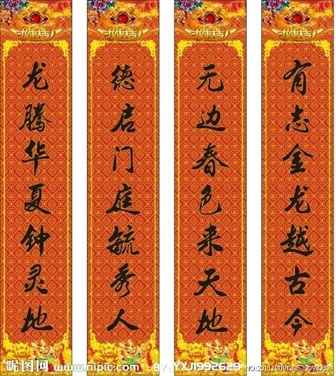 有志金龙越古今
无边春色来天地
德启门庭毓秀人
龙腾华夏钟灵地
昵图网
www.nipic.com
BY:YXJ1992629